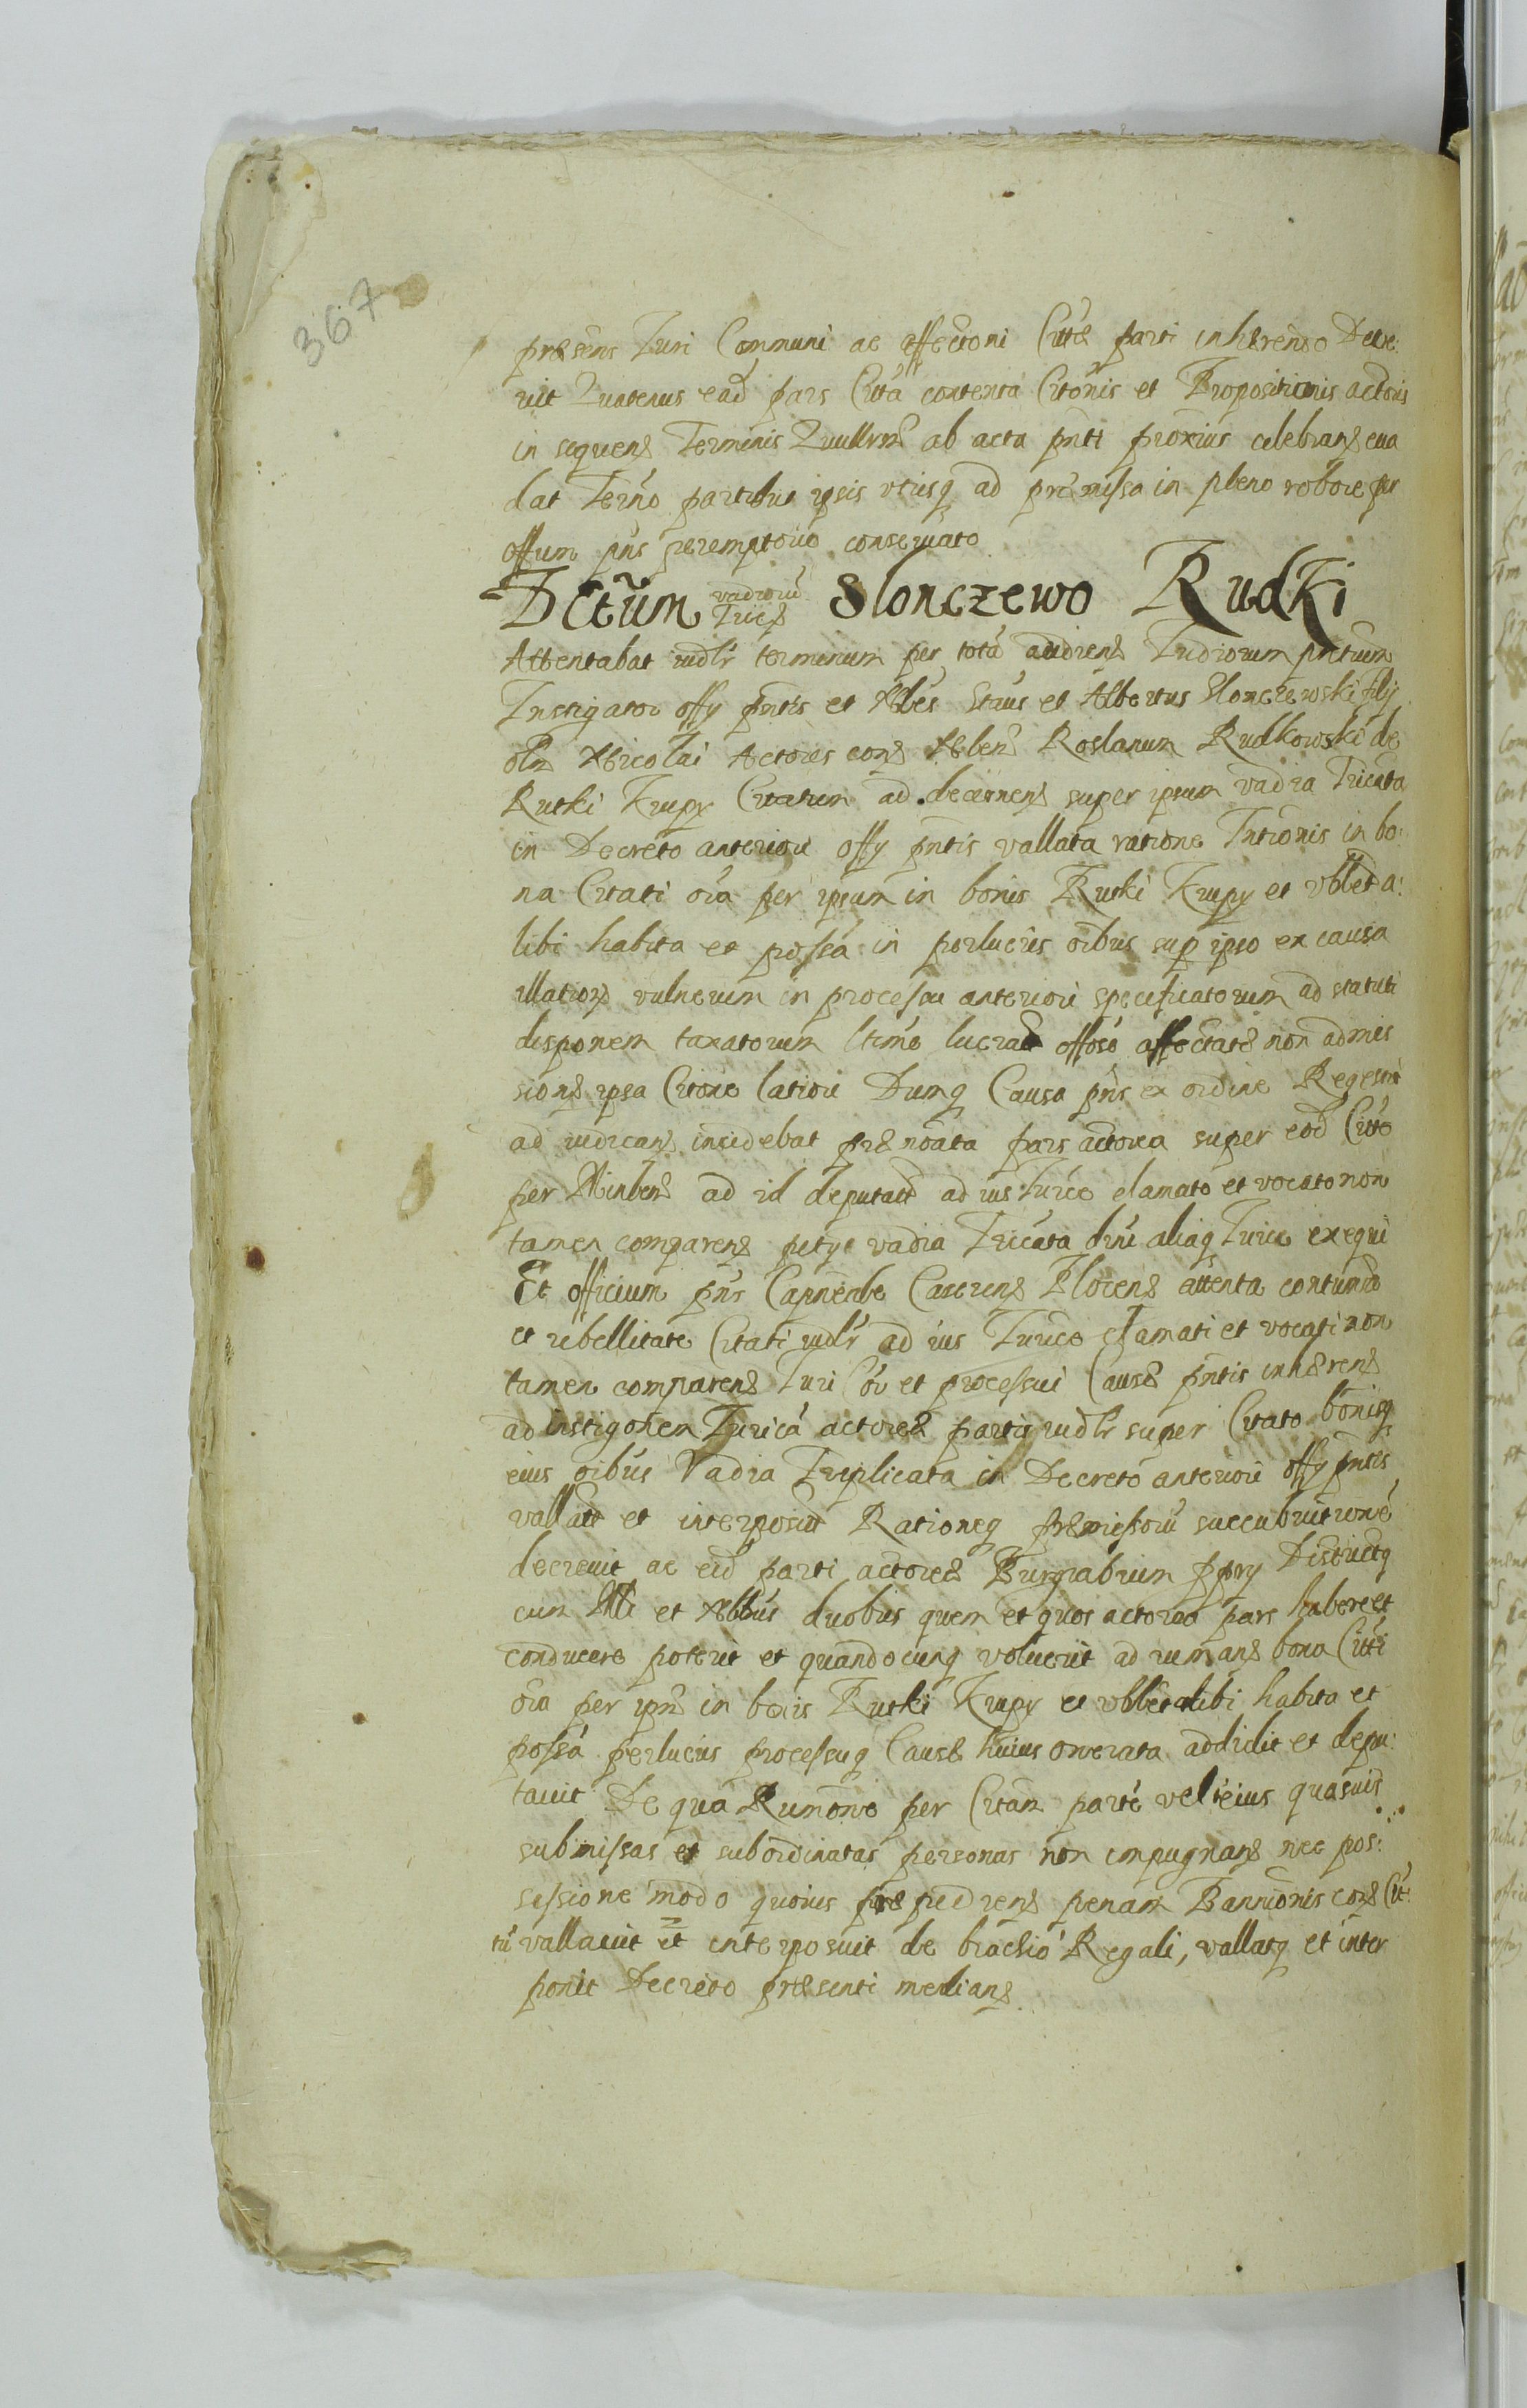 367
præsens Juri Communi ac affectoni Cittæ parti inhærendo Decre:
vit Quatenus ead pars Citta contenta Citonis et Propositionis actoris
in sequen Terminis Quullrm ab acta pnti proxius celebran eua
dat Termo partibus ipsis utrisq ad præmissa in pleno robore per
offum pns peremptorio conservato
Dctum vadiorũ Tric Slonczewo Rudki
Attentabat iudlr terminum per totã audien Judiorum pntium
Instigator offy pntis et Nbles Staus et Albertus Slonczewski filij
olm Nicolai Actores con Nblem Roslanum Rudkowski de
Rutki Krupy Citatum ad decernen super ipsum vadia Tricata
in Decreto anteriori offy pntis vallata ratione Intionis in bo:
na Citati oia per ipsum in bonis Rutki Krupy et vbilet a:
libi habita et possa in perlucris oibus sup ipso ex causa
illation vulnerum in processu anteriori specificatorum ad statuti
disponem taxatorum ltime lucrat offose affectatæ non admis
sion ipsa Citone latiori Dumq Causa pns ex ordine Regestri
ad iudican incidebat prænoata pars actorea super eod Citto
per Minlem ad id deputatt ad ius Trice clamato et vocato non
tamen comparen petyt vadia Tricata drni aliaq Juris exequi
Et officium pns Capneale Castren Plocen attenta contumao
et rebellitate Citati iudlr ad ius Trice clamati et vocati non
tamen comparen Juri Coi et processui Causæ pntis inhæren
ad instigonem Juricã actoreæ partis iudlr super Citato bonisq
eius oibus Vadia Triplicata in Decreto anteriori offy pntis
vallatt et interposit Rationeq præmissorũ succubuitionẽ
decrevit ac eid parti actoreæ Burgrabium ppry Districtq
cum Mli et Nblbus duobus quem et quos actorea pars habere et
conducere poterit et quandocunq voluerit ad ruman bona Citti
oia per ipm in bonis Rutki Krupy et vbilet alibi habita et
possa perlucris processuq Causæ huius onerata addidit et depu:
tavit De qua Rumone per Citam partẽ vel eius quasuis
submissas et subordinatas personas non impugnan nec pos:
sessione modo quovis præpedien penam Bannionis con Cit:
tũ vallavit et interposuit de brachio Regali, vallatq et inter
ponit Decreto præsenti median